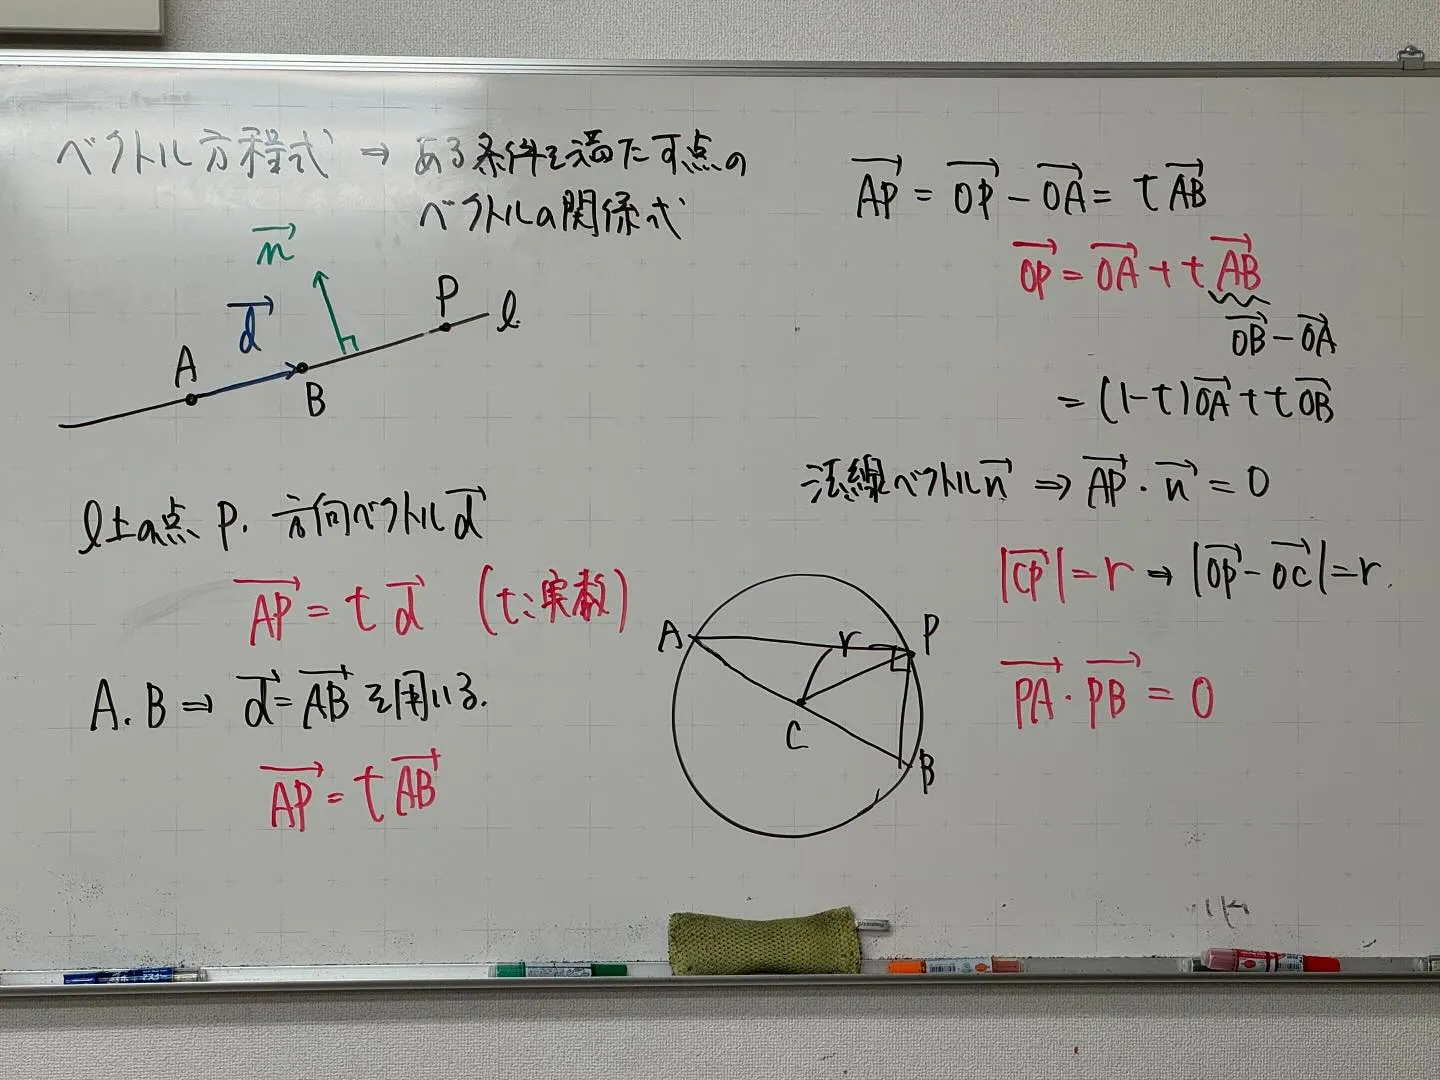 ベクトル方程式 ⇒ ある条件を満たす点の
ベクトルの関係式
n→
d→
A
B
P
l
l上の点 P. 方向ベクトルd→
AP→ = t d→ (t:実数)
A. B ⇒ d→ = AB→ を用いる.
AP→ = t AB→
AP→ = OP→ − OA→ = t AB→
OP→ = OA→ + t AB→
OB→ − OA→
= (1−t)OA→ + t OB→
法線ベクトルn→ ⇒ AP→ · n→ = 0
|CP→| = r ⇒ |OP→ − OC→| = r.
PA→ · PB→ = 0
A
r
P
C
B